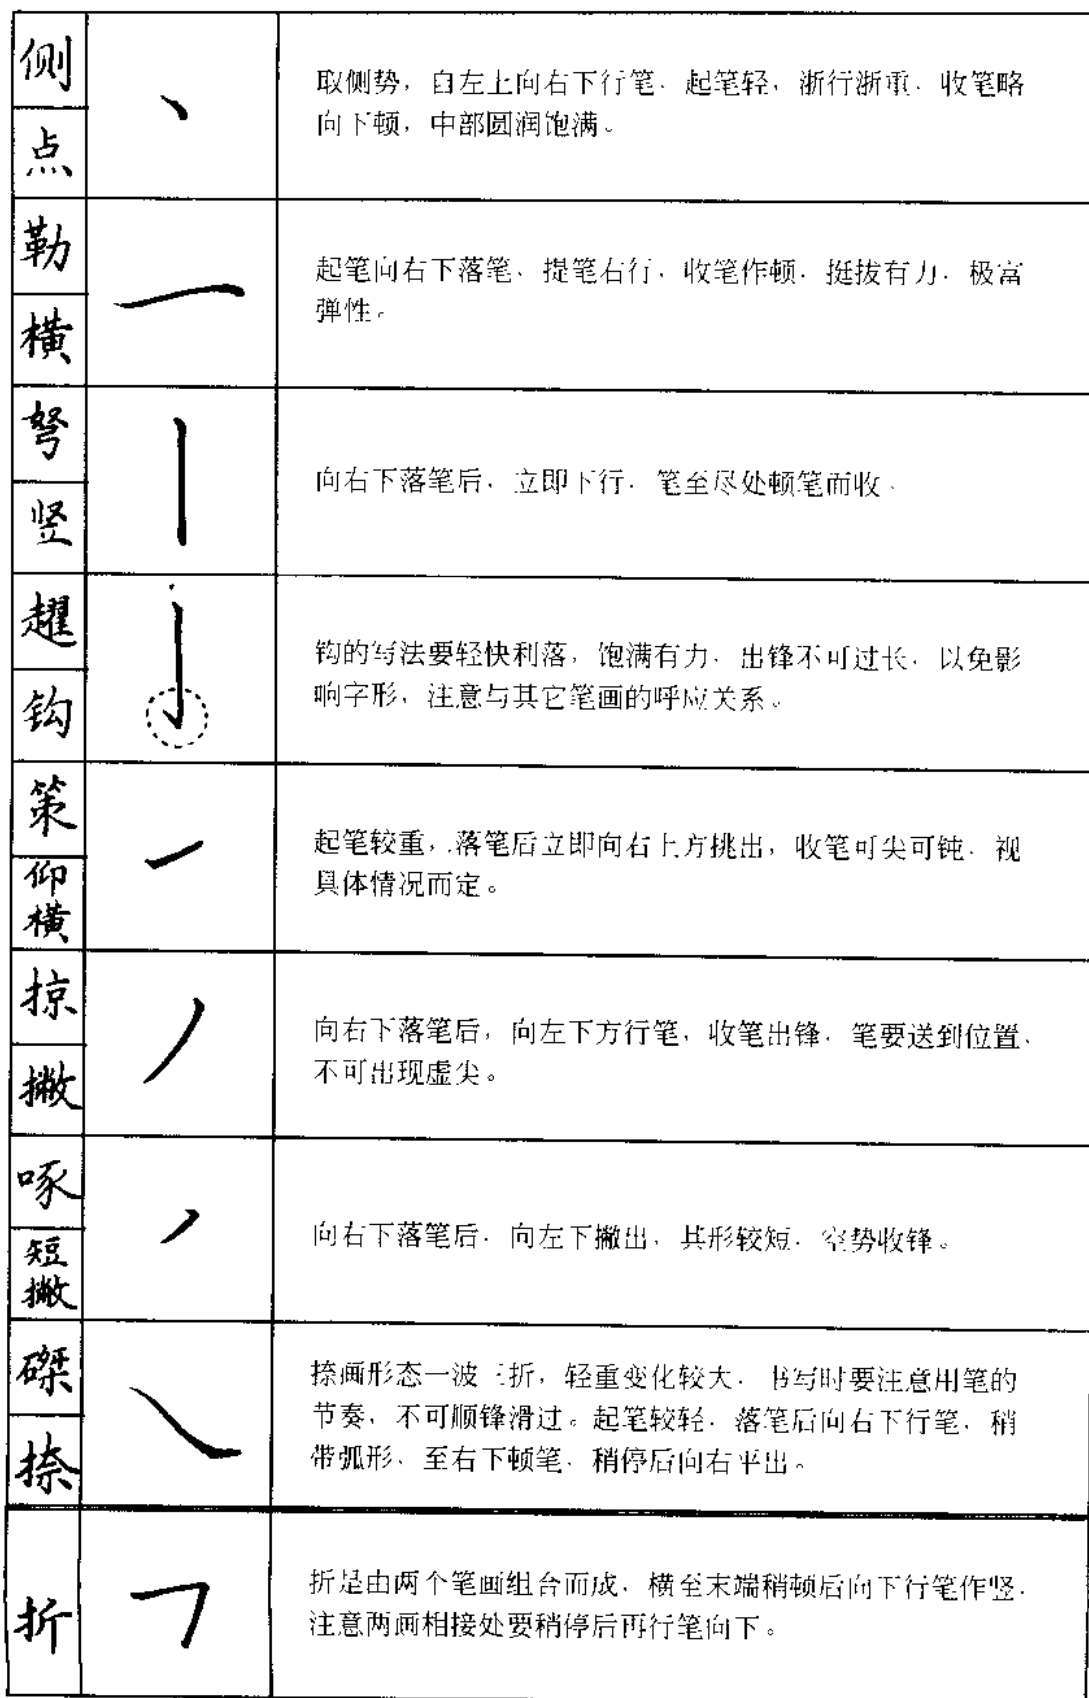 侧
点
取侧势，自左上向右下行笔．起笔轻，浙行浙重．收笔略
向下顿，中部圆润饱满。
勒
横
起笔向右下落笔、提笔右行，收笔作顿，挺拔有力，极富
弹性。
弩
竖
向右下落笔后，立即下行，笔至尽处顿笔而收．
趯
钩
钩的写法要轻快利落，饱满有力．出锋不可过长，以免影
响字形，注意与其它笔画的呼应关系。
策
仰
横
起笔较重，落笔后立即向右上方挑出，收笔可尖可钝．视
具体情况而定。
掠
撇
向右下落笔后，向左下方行笔，收笔出锋．笔要送到位置．
不可出现虚尖。
啄
短
撇
向右下落笔后．向左下撇出，其形较短．空势收锋。
磔
捺
捺画形态一波三折，轻重变化较大．书写时要注意用笔的
节奏，不可顺锋滑过。起笔较轻．落笔后向右下行笔，稍
带弧形、至右下顿笔、稍停后向右平出。
折
折是由两个笔画组合而成．横至末端稍顿后向下行笔作竖．
注意两画相接处要稍停后再行笔向下。